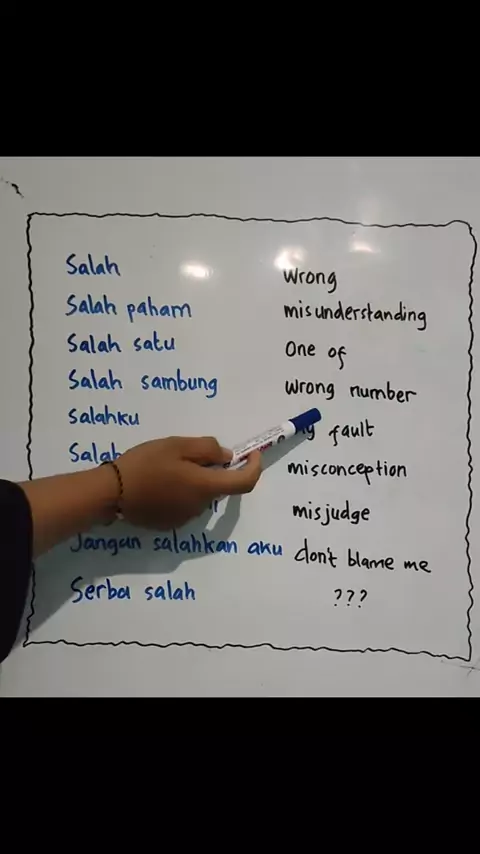 Salah wrong
Salah paham misunderstanding
Salah satu One of
Salah sambung wrong number
Salahku fault
Salah misconception
misjudge
Jangan salahkan aku don't blame me
Serba salah ???